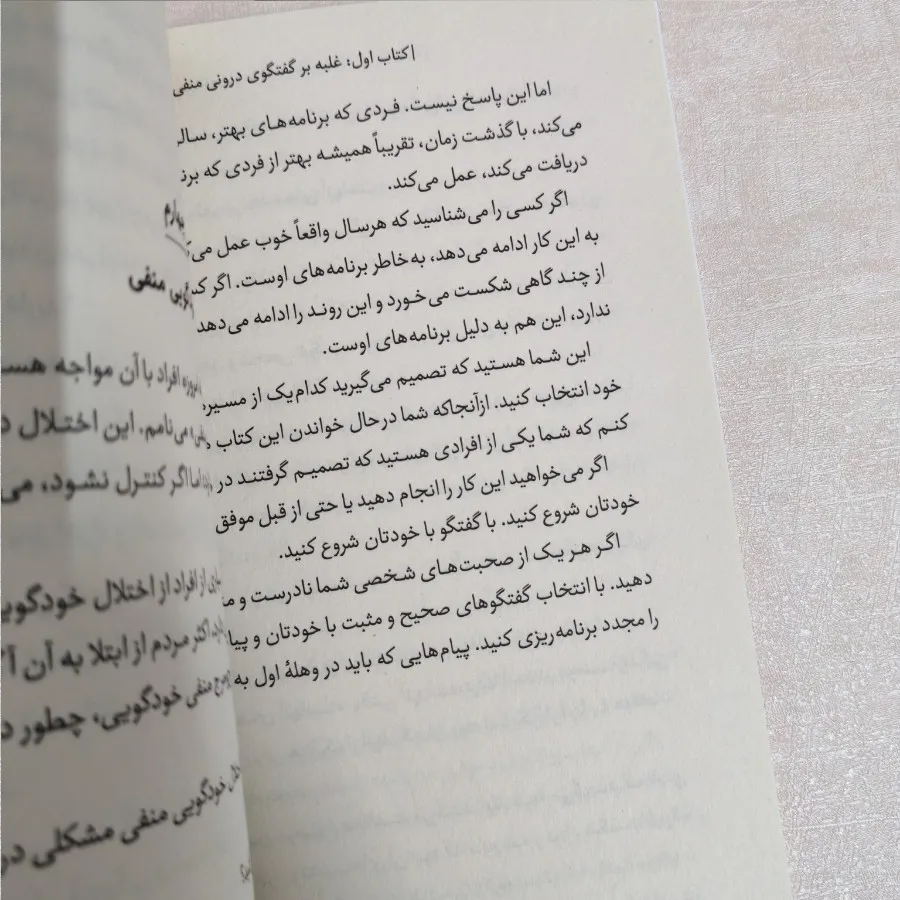 | کتاب اول: غلبه بر گفتگوی درونی منفی
اما این پاسخ نیست. فردی که برنامه‌های بهتر،
می‌کند، با گذشت زمان، تقریباً همیشه بهتر از فردی که
دریافت می‌کند، عمل می‌کند.
اگر کسی را می‌شناسید که هرسال واقعاً خوب عمل
به این کار ادامه می‌دهد، به‌خاطر برنامه‌های اوست. اگر
از چند گاهی شکست می‌خورد و این روند را ادامه می‌دهد
ندارد، این هم به دلیل برنامه‌های اوست.
این شما هستید که تصمیم می‌گیرید کدام‌یک از
خود انتخاب کنید. ازآنجاکه شما درحال خواندن این کتاب
کنم که شما یکی از افرادی هستید که تصمیم گرفتند در
اگر می‌خواهید این کار را انجام دهید یا حتی از قبل موفق
خودتان شروع کنید. با گفتگو با خودتان شروع کنید.
اگر هر یک از صحبت‌های شخصی شما نادرست و
دهید. با انتخاب گفتگوهای صحیح و مثبت با خودتان و
را مجدد برنامه‌ریزی کنید. پیام‌هایی که باید در وهلهٔ اول به
منفی
افراد با آن مواجه
می‌نامم. این اختلال
اما اگر کنترل نشود،
از افراد از اختلال
اکثر مردم از ابتلا به آن
منفی خودگویی، چطور
خودگویی منفی مشکلی